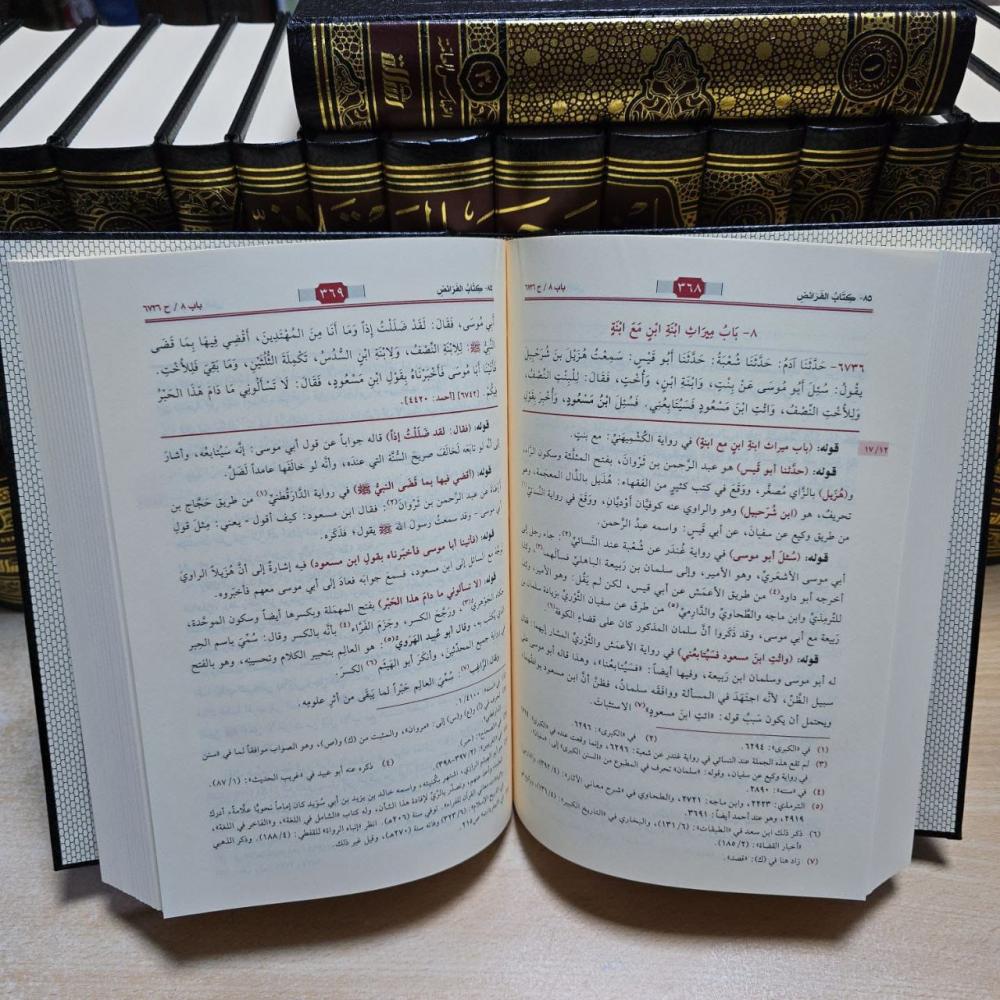 ٨٥- كِتَابُ الفَرَائض
٣٦٨
باب ٨ / ح ٦٧٣٦
٨- بَابُ مِيرَاثِ ابْنَةِ ابْنٍ مَعَ ابْنَةٍ
٦٧٣٦- حَدَّثَنَا آدَمُ: حَدَّثَنَا شُعْبَةُ: حَدَّثَنَا أَبُو قَيْسٍ: سَمِعْتُ هُزَيْلَ بْنَ شُرَحْبِيلَ
يَقُولُ: سُئِلَ أَبُو مُوسَى عَنْ بِنْتٍ، وَابْنَةِ ابْنٍ، وَأُخْتٍ، فَقَالَ: لِلْبِنْتِ النِّصْفُ،
وَلِلأُخْتِ النِّصْفُ، وَائْتِ ابْنَ مَسْعُودٍ فَسَيُتَابِعُنِي. فَسُئِلَ ابْنُ مَسْعُودٍ، وَأُخْبِرَ بِقَوْلِ
١٧/١٢
قوله: (باب ميراث ابنةِ ابنٍ مع ابنةٍ) في رواية الكُشْمِيهنيّ: مع بنتٍ.
قوله: (حدَّثنا أبو قَيس) هو عبد الرَّحمن بن ثَرْوانَ، بفتح المثلَّثة وسكون الرَّاء،
و(هُزَيل) بالزَّاي مُصغَّر، ووَقَعَ في كتب كثيرٍ من الفقهاء: هُذيل بالذَّال المعجمة، وهو
تحريفٌ، هو (ابن شُرَحبيل) وهو والراوي عنه كوفيَّانِ أَوْديَّانِ، ووَقَعَ في رواية النَّسائيّ
من طريق وكيع عن سفيانَ، عن أبي قيسٍ: واسمه عبدُ الرَّحمن.
قوله: (سُئلَ أبو موسى) في رواية غُندَر عن شُعبة عند النَّسائيِّ: جاء رجل إلى
أبي موسى الأشعَريّ، وهو الأمير، وإلى سلمان بن رَبيعة الباهليِّ فسألهما، وكذا
أخرجه أبو داود(٤) من طريق الأعمَش عن أبي قيس، لكن لم يَقُل: وهو الأمير، وكذا
للتِّرمِذيّ وابن ماجه والطَّحاويّ والدَّارِميّ(٥) من طرق عن سفيان الثَّوْريّ بزيادة سلمان بن
رَبيعة مع أبي موسى، وقد ذَكَروا أنَّ سلمان المذكور كان على قضاء الكوفة(٦).
قوله: (وائتِ ابنَ مسعود فسَيُتابعُني) في رواية الأعمَش والثَّوْريّ المشار إليهما: فقال
له أبو موسى وسلمان ابن رَبيعة، وفيها أيضاً: «فسَيُتابعُنا»، وهذا قاله أبو موسى على
سبيل الظَّنّ، لأنَّه اجتَهَدَ في المسألة ووافَقَه سلمانُ، فظَنَّ أنَّ ابن مسعود يوافقُهما،
ويحتمل أن يكون سَبَبُ قوله: «ائتِ ابنَ مسعودٍ»(٧) الاستثبات.
(١) في «الكبرى»: ٦٢٩٤.
(٢) في «الكبرى»: ٦٢٩٦
(٣) لم تقع هذه الجملة عند النسائي في رواية غندر عن شعبة: ٦٢٩٦، وإنما وقعت عنده في
في رواية وكيع عن سفيان، وقوله: «سلمان» تحرف في المطبوع من «السنن الكبرى» إلى:
(٤) في «سننه»: ٢٨٩٠.
(٥) الترمذي: ٢٢٢٣، وابن ماجه: ٢٧٢١، والطحاوي في «شرح معاني الآثار»: (٣٩٢/٤)،
٢٩١٩، وهو عند أحمد أيضاً: ٣٦٩١.
(٦) ذكر ذلك ابن سعد في «الطبقات»: (١٣١/٦)، والبخاري في «التاريخ الكبير»:
«أخبار القضاة»: (١٨٥/٢).
(٧) زاد هنا في (ك): «قصد».
٨٥- كِتَابُ الفَرَائض
٣٦٩
باب ٨ / ح ٦٧٣٦
أَبِي مُوسَى، فَقَالَ: لَقَدْ ضَلَلْتُ إِذاً وَمَا أَنَا مِنَ المُهْتَدِينَ، أَقْضِي فِيهَا بِمَا قَضَى
النَّبِيُّ ﷺ: لِلابْنَةِ النِّصْفُ، وَلِابْنَةِ ابْنٍ السُّدُسُ، تَكْمِلَةَ الثُّلُثَيْنِ، وَمَا بَقِيَ فَلِلأُخْتِ.
فَأَتَيْنَا أَبَا مُوسَى فَأَخْبَرْنَاهُ بِقَوْلِ ابْنِ مَسْعُودٍ، فَقَالَ: لَا تَسْأَلُونِي مَا دَامَ هَذَا الحَبْرُ
فِيكُمْ. [٦٧٤٢] [أحمد: ٤٤٢٠].
قوله: (فقال: لقد ضَلَلْتُ إذاً) قاله جواباً عن قول أبي موسى: إنَّه سَيُتابعُه، وأشارَ
إلى أنَّه لو تابَعَه لخالَفَ صريحَ السُّنَّة التي عندَه، وأنَّه لو خالَفَها عامداً لَضَلَّ.
قوله: (أقضي فيها بما قَضَى النبيُّ ﷺ) في رواية الدَّارَقُطنيّ(١) من طريق حَجَّاج بن
أرطاة عن عبد الرَّحمن بن ثَرْوانَ(٢): فقال ابن مسعود: كيف أقول - يعني: مثلَ قولِ
أبي موسى - وقد سمعتُ رسولَ الله ﷺ يقول؟ فذَكَره.
قوله: (فأتينا أبا موسى فأخبَرناه بقولِ ابنِ مسعود) فيه إشارةٌ إلى أنَّ هُزَيلاً الراويَ
توجَّه مع السائل إلى ابن مسعود، فسمعَ جوابَه فعادَ إلى أبي موسى معهم فأخبَروه.
قوله: (لا تسألوني ما دامَ هذا الحَبْر) بفتح المهمَلة وبكسرها أيضاً وسكون الموحَّدة،
حكاه الجَوْهَريّ(٣)، ورَجَّحَ الكسر، وجَزَمَ الفَرَّاء(٤) بأنَّه بالكسر وقال: سُمّيَ باسم الحِبر
الذي يُكتب به، وقال أبو عُبيد الهَرَويّ(٥): هو العالِم بتحبير الكلام وتحسينِه، وهو بالفتح
في رواية جميع المحدِّثين، وأنكَرَ أبو الهَيثَم(٦) الكسرَ.
وقال الرَّاغِب(٧): سُمّيَ العالِم حَبْراً لما يَبقَى من أثر علومِه.
(١) في «سننه»: ٤١٠٠/١.
في (أ) و(ع) و(س) إلى: «مروان»، والمثبت من (ك) و(ص)، وهو الصواب موافقاً لما في «سنن
(٤) ذكره عنه أبو عبيد في «غريب الحديث»: (٨٧/١).